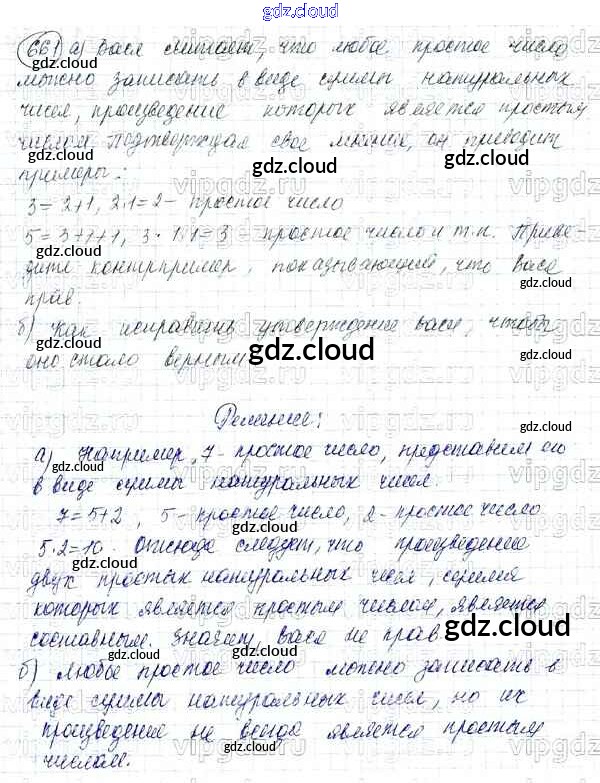 gdz.cloud
661 а) Вася считает, что любое простое число
можно записать в виде суммы натуральных
чисел, произведение которых является простым
числом. Подтверждая свое мнение, он приводит
примеры:
3 = 2+1, 2·1=2 - простое число
5 = 3+1+1, 3·1·1=3 - простое число и т.п. Приве-
дите контрпример, показывающий, что Вася
прав.
б) Как исправить утверждение Васи, чтобы
оно стало верным
gdz.cloud
Решение:
а) Например, 7 - простое число, представим его
в виде суммы натуральных чисел.
7=5+2, 5 - простое число, 2 - простое число
5·2=10. Отсюда следует, что произведение
двух простых натуральных чисел, сумма
которых является простым числом, является
составным. Значит, Вася не прав.
gdz.cloud
б) Любое простое число можно записать в
виде суммы натуральных чисел, но их
произведение не всегда является простым
числом.
gdz.cloud